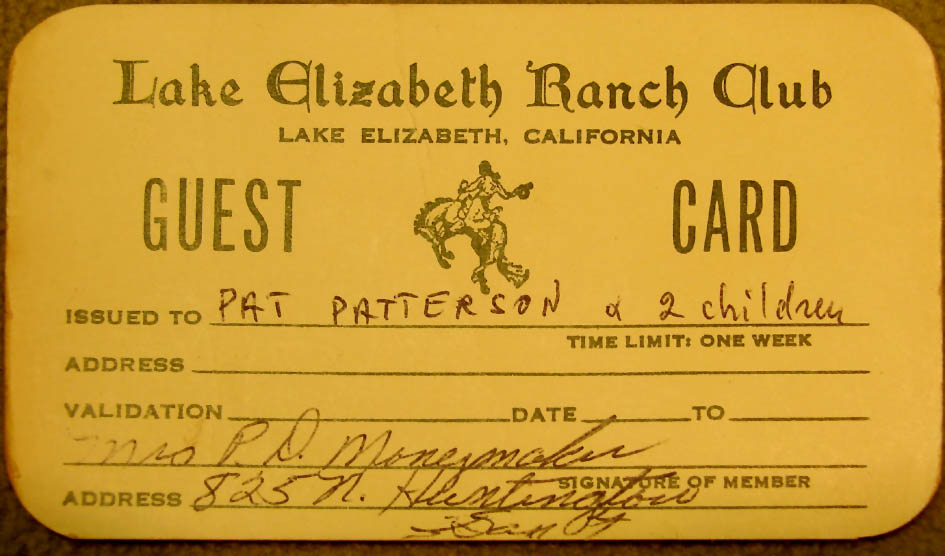 Lake Elizabeth Ranch Club
LAKE ELIZABETH, CALIFORNIA
GUEST CARD
ISSUED TO PAT PATTERSON & 2 children
TIME LIMIT: ONE WEEK
ADDRESS
VALIDATION DATE TO
Mrs P. D. Moneymaker
SIGNATURE OF MEMBER
ADDRESS 825 N. Huntington